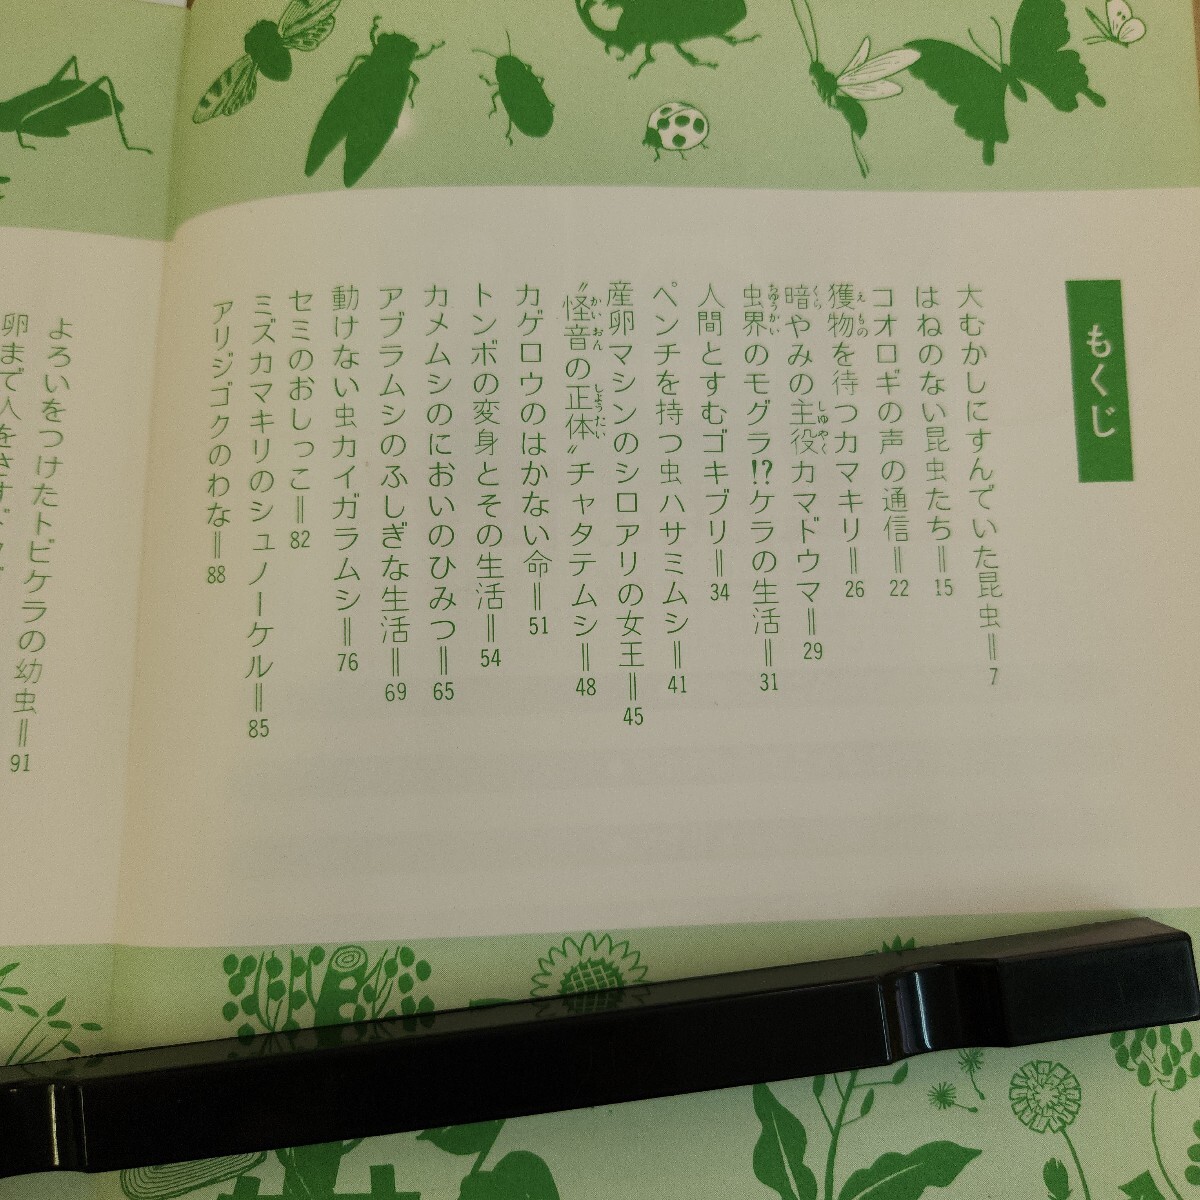 もくじ
大むかしにすんでいた昆虫=7
はねのない昆虫たち=15
コオロギの声の通信=22
獲物を待つカマキリ=26
暗やみの主役カマドウマ=29
虫界のモグラ!?ケラの生活=31
人間とすむゴキブリ=34
ペンチを持つ虫ハサミムシ=41
産卵マシンのシロアリの女王=45
〝怪音の正体〟チャタテムシ=48
カゲロウのはかない命=51
トンボの変身とその生活=54
カメムシのにおいのひみつ=65
アブラムシのふしぎな生活=69
動けない虫カイガラムシ=76
セミのおしっこ=82
ミズカマキリのシュノーケル=85
アリジゴクのわな=88
よろいをつけたトビケラの幼虫=91
卵まで人をさす